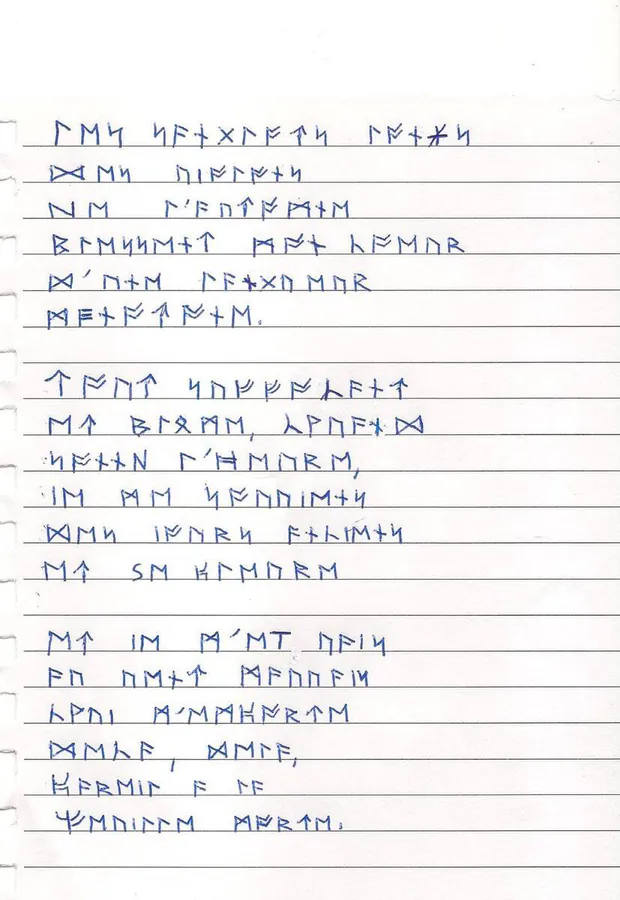 ᛚᛖᛋ ᛋᚨᚾᚷᛚᚩᛏᛋ ᛚᚩᚾᚷᛋ
ᛞᛖᛋ ᚢᛁᚩᛚᚩᚾᛋ
ᛞᛖ ᛚ'ᚨᚢᛏᚩᛗᚾᛖ
ᛒᛚᛖᛋᛋᛖᚾᛏ ᛗᚩᚾ ᚳᚩᛖᚢᚱ
ᛞ'ᚢᚾᛖ ᛚᚨᚾᚷᚢᛖᚢᚱ
ᛗᚩᚾᚩᛏᚩᚾᛖ.
ᛏᚩᚢᛏ ᛋᚢᚠᚠᚩᚳᚨᚾᛏ
ᛖᛏ ᛒᛚᛟᛗᛖ, ᚳᚹᚢᚨᚾᛞ
ᛋᚩᚾᚾᛖ ᛚ'ᚻᛖᚢᚱᛖ,
ᛁᛖ ᛗᛖ ᛋᚩᚢᚢᛁᛖᚾᛋ
ᛞᛖᛋ ᛁᚩᚢᚱᛋ ᚨᚾᚳᛁᛖᚾᛋ
ᛖᛏ ᛋᛖ ᛈᛚᛖᚢᚱᛖ
ᛖᛏ ᛁᛖ ᛗ'ᛖᛏ ᚢᚨᛁᛋ
ᚨᚢ ᚢᛖᚾᛏ ᛗᚨᚢᚢᚨᛁᛋ
ᚳᚹᚢᛁ ᛗ'ᛖᛗᛈᚩᚱᛏᛖ
ᛞᛖᚳᚨ, ᛞᛖᛚᚨ,
ᛈᚨᚱᛖᛁᛚ ᚨ ᛚᚨ
ᚠᛖᚢᛁᛚᛚᛖ ᛗᚩᚱᛏᛖ.